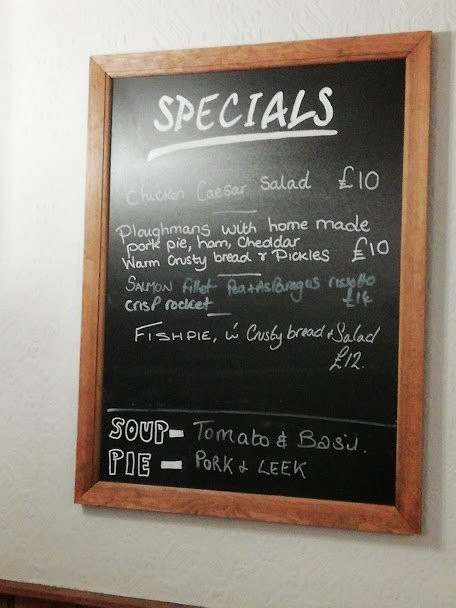 SPECIALS
Chicken Caesar Salad £10
Ploughmans with home made
pork pie, ham, Cheddar
Warm Crusty bread & Pickles £10
SALMON fillet Pea + Asparagus risotto
Crisp rocket £14
FISHPIE, w Crusty bread + Salad
£12.
SOUP- Tomato & Basil.
PIE - PORK & LEEK